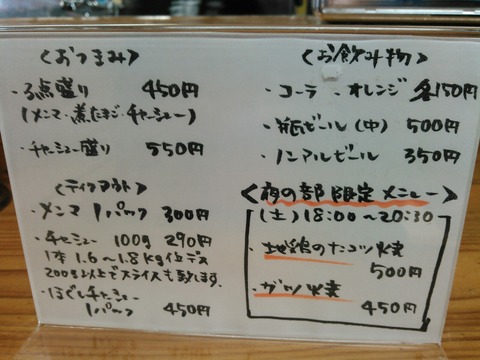 〈おつまみ〉
・3点盛り 450円
(メンマ・煮たまご・チャーシュー)
・チャーシュー盛り 550円
〈テイクアウト〉
・メンマ 1パック 300円
・チャーシュー 100g 290円
1本 1.6〜1.8kg位デス
200g以上でスライスも致します。
・ほぐしチャーシュー
1パック 450円
〈お飲み物〉
・コーラ ・オレンジ 各150円
・瓶ビール(中) 500円
・ノンアルビール 350円
〈夜の部限定メニュー〉
(土) 18:00〜20:30
・地鶏のナンコツ焼
500円
・ガツ焼
450円